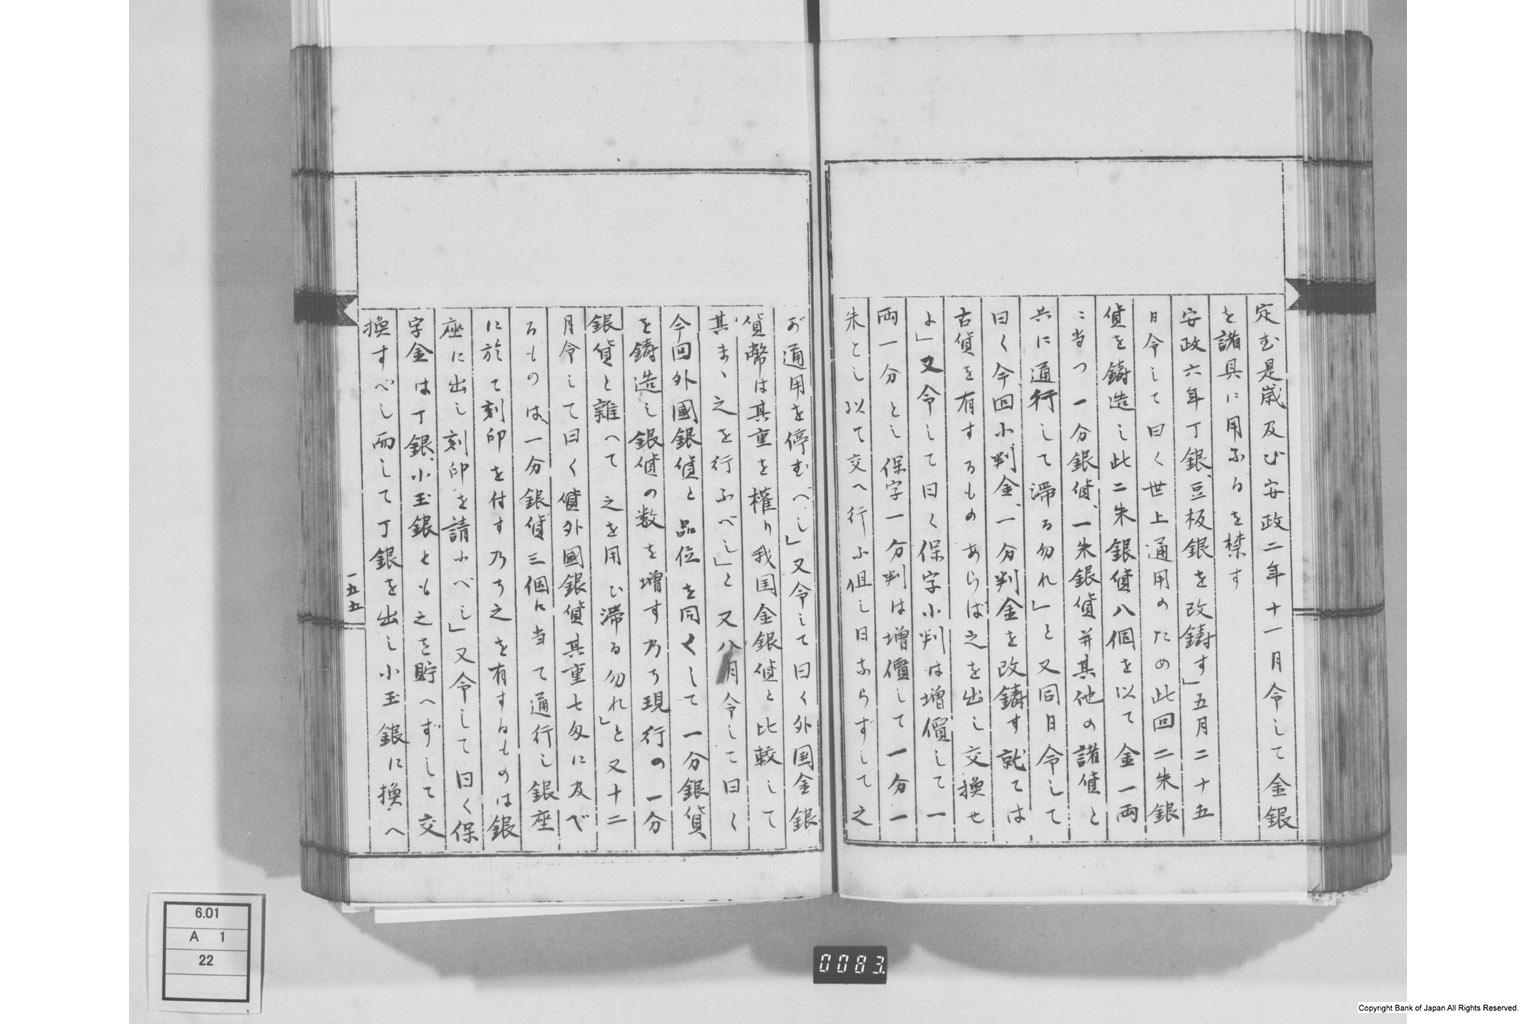 定む是歳及び安政二年十一月令して金銀
を諸具に用ふるを禁す
安政六年丁銀、豆板銀を改鋳す」五月二十五
日令して曰く世上通用のため此回二朱銀
貨を鋳造し此二朱銀貨八個を以て金一両
に当つ一分銀貨、一朱銀貨并其他の諸貨と
共に通行して滞る勿れ」と又同日令して
曰く今回小判金、一分判金を改鋳す就ては
古貨を有するものあらば之を出し交換せ
よ」又令して曰く保字小判は増價して一
両一分とし保字一分判は増價して一分一
朱とし以て交へ行ふ但し日ならずして之
が通用を停むべし」又令して曰く外国金銀
貨幣は其重を權り我国金銀貨と比較して
其まゝ之を行ふべし」と又八月令して曰く
今回外國銀貨と品位を同くして一分銀貨
を鋳造し銀貨の数を増す乃ち現行の一分
銀貨と雜へて之を用ひ滞る勿れ」と又十二
月令して曰く儻外國銀貨其重七匁に及べ
るものは一分銀貨三個に当て通行し銀座
に於て刻印を付す乃ち之を有するものは銀
座に出し刻印を請ふべし」又令して曰く保
字金は丁銀、小玉銀とも之を貯へずして交
換すべし而して丁銀を出し小玉銀に換へ
一五五
6.01
A 1
22
0083
Copyright Bank of Japan All Rights Reserved.